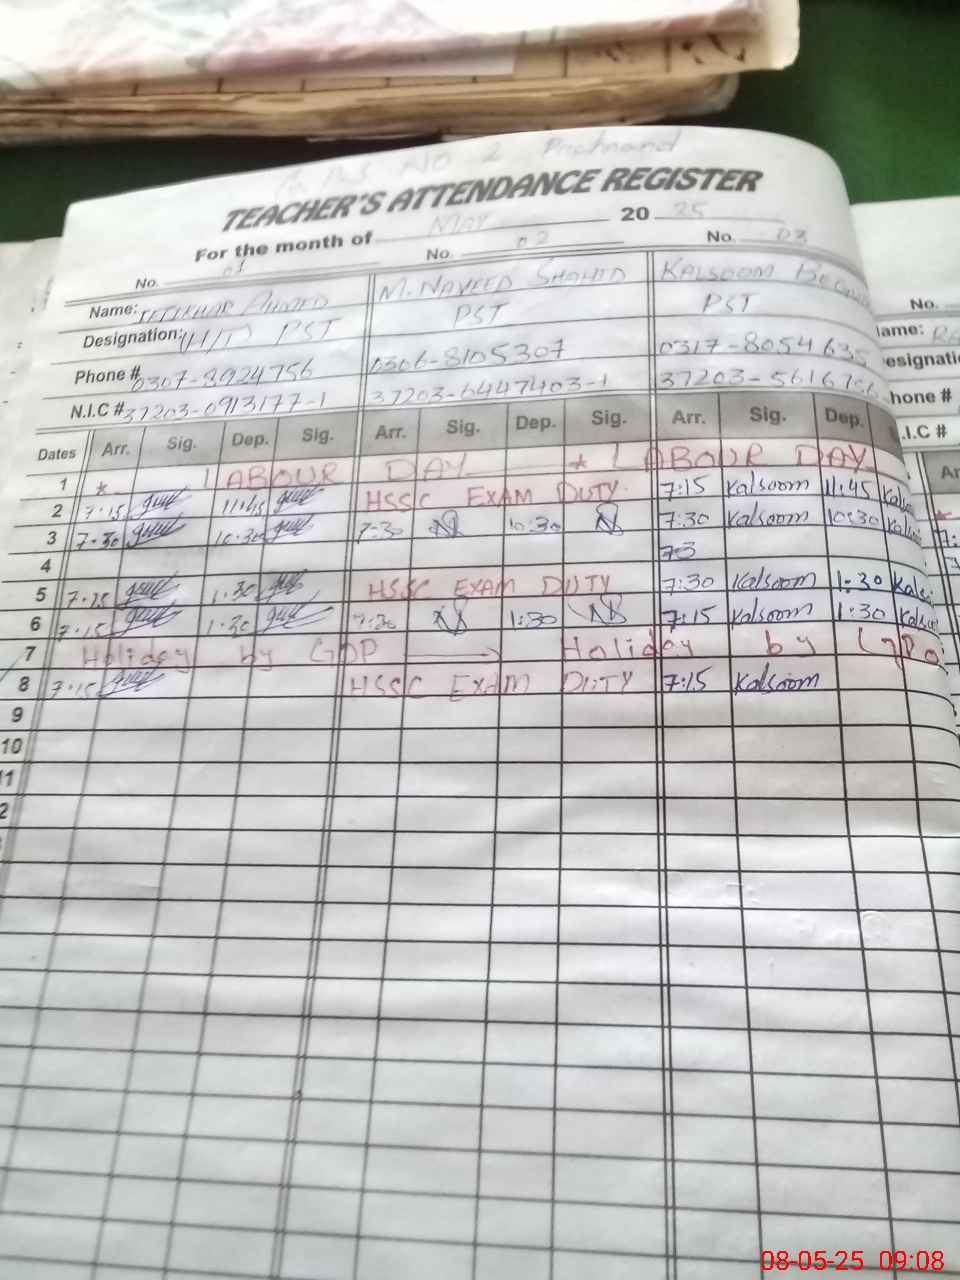 NO 2
TEACHER'S ATTENDANCE REGISTER
For the month of MAY 2025
No. 01 No. 02 No. 03
Name: IFTIKHAR AHMED M. NAVEED SHAHID KALSOOM
Designation: (H/T) PST PST PST
Phone # 0307-8924756 0306-8105307 0317-8054635
N.I.C # 37203-0913177-1 37203-6447403-1 37203-5616756
Dates Arr. Sig. Dep. Sig. Arr. Sig. Dep. Sig. Arr. Sig. Dep.
1 * LABOUR DAY * LABOUR DAY
2 7:15 11:45 HSSC EXAM DUTY 7:15 Kalsoom 11:45
3 7:30 10:30 7:30 10:30 7:30 Kalsoom 10:30
4
5 7:15 1:30 HSSC EXAM DUTY 7:30 Kalsoom 1:30
6 7:15 1:30 7:30 1:30 7:15 Kalsoom 1:30
7 Holiday by GOP Holiday by GOP
8 7:15 HSSC EXAM DUTY 7:15 Kalsoom
9
10
11
2
No.
ame:
esignati
hone #
.I.C #
08-05-25 09:08